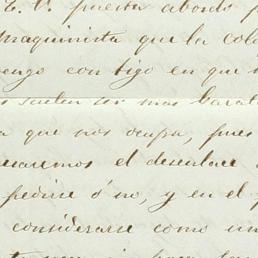 E. V. puesta abordo
maquinista que la col
tengo con tigo en que
suelen ser mas barat
a que nos ocupa, pues
esaremos el desenlace
pedirse ó no, y en el p
considerarse como un